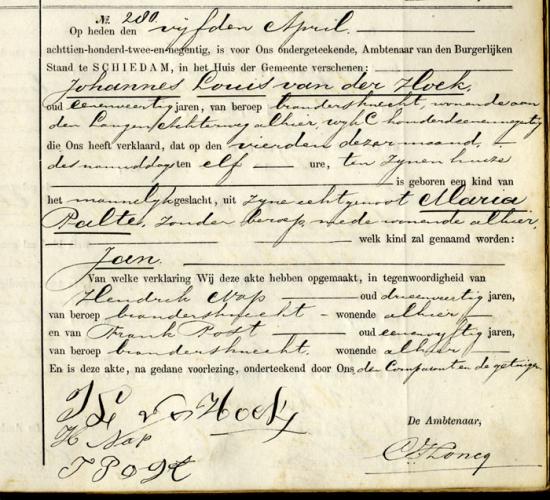 № 280.
Op heden den vijfden April.
achttien-honderd-twee-en-negentig, is voor Ons ondergeteekende, Ambtenaar van den Burgerlijken
Stand te SCHIEDAM, in het Huis der Gemeente verschenen:
Johannes Louis van der Hoek,
oud eenenveertig jaren, van beroep brandersknecht, wonende aan
den Langen Achterweg alhier, wijk C honderdeenennegentig
die Ons heeft verklaard, dat op den vierden dezer maand,
des namiddags ten elf ure, ten zijnen huize
is geboren een kind van
het mannelijk geslacht, uit zijne echtgenoot Maria
Palte, zonder beroep, mede wonende alhier,
welk kind zal genaamd worden:
Jan.
Van welke verklaring Wij deze akte hebben opgemaakt, in tegenwoordigheid van
Hendrik Nap oud drieenveertig jaren,
van beroep brandersknecht wonende alhier
en van Frank Post oud eenenvijftig jaren,
van beroep brandersknecht. wonende alhier
En is deze akte, na gedane voorlezing, onderteekend door Ons, den Comparant en de getuigen
J L v d Hoek
H Nap
F POST
De Ambtenaar,